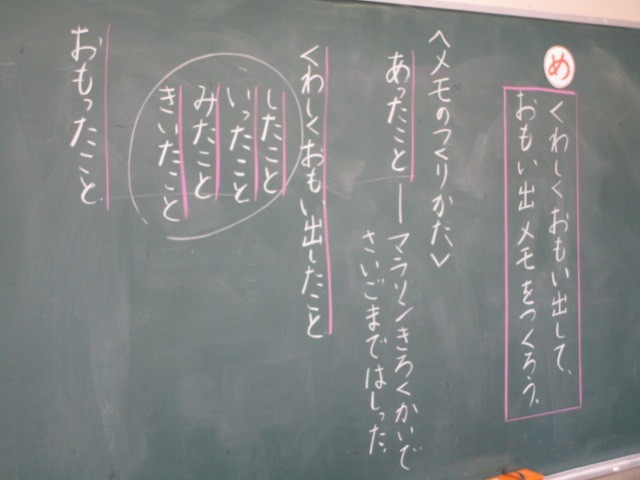 め
くわしくおもい出して、
おもい出メモをつくろう。
<メモのつくりかた>
あったこと ー マラソンきろくかいで
さいごまではしった。
くわしくおもい出したこと
したこと
いったこと
みたこと
きいたこと
おもったこと